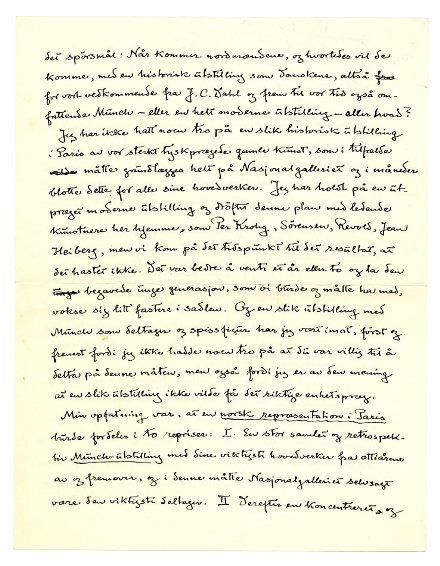 det spörsmål: Når kommer nordmændene, og hvorledes vil de
komme, med en historisk utstilling som Danskene, altså
for vort vedkommende fra J. C. Dahl og frem til vor tid også om-
fattende Munch – eller en helt moderne utstilling – eller hvad?
Jeg har ikke hatt noen tro på en slik historisk utstilling
i Paris av vor sterkt tyskprægede gamle kunst, som i tilfælde
måtte grundlægges helt på Nasjonalgalleriet og i måneder
blotte dette for alle sine hovedverker. Jeg har holdt på en ut-
præget moderne utstilling og dröftet denne plan med ledende
kunstnere her hjemme, som Per Krohg, Sörensen, Revold, Jean
Heiberg, men vi kom på det tidspunkt til det resultat, at
det haster ikke. Det var bedre å vente et år eller to og la den
begavede unge generasjon, som vi burde og måtte ha med,
vokse sig litt fastere i sadlen. Og en slik utstilling med
Munch som deltager og spissfigur har jeg vært imot, först og
fremst fordi jeg ikke hadde noen tro på at du var villig til å
delta på denne måten, men også fordi jeg er av den mening
at en slik utstilling ikke vilde få det riktige enhetspreg.
Min opfatning var, at en norsk representation i Paris
burde fordeles i to repriser: I. En stor samlet og retrospek-
tiv Munch utstilling med dine viktigste hovedverker fra ottiårene
av og fremover, og i denne måtte Nasjonalgalleriet selvsagt
være den viktigste deltager. II Derefter en koncentreret, og